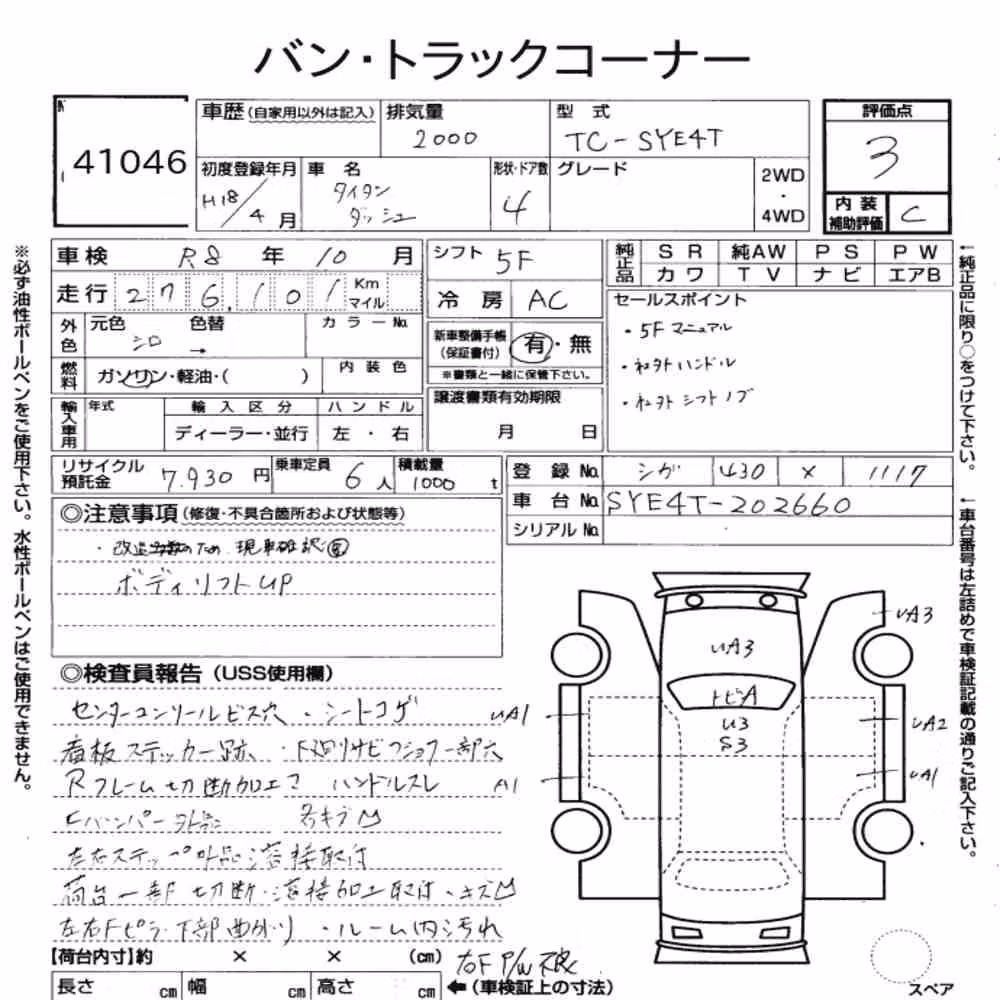 バン・トラックコーナー
41046
車歴（自家用以外は記入）
排気量
2000
型式
TC-SYE4T
評価点
3
初度登録年月
H18/4月
車名
タイタン
ダッシュ
形状・ドア数
4
グレード
2WD
・
4WD
内装
補助評価
C
車検 R8年 10月
シフト 5F
純正品
SR 純AW PS PW
カワ TV ナビ エアB
走行 276,101 Km マイル
冷房 AC
セールスポイント
・5Fマニュアル
・社外ハンドル
・社外シフトノブ
外色
元色 シロ
色替 →
カラーNo.
新車整備手帳
（保証書付）
有・無
※書類と一緒に保管下さい。
燃料
ガソリン・軽油・（ ）
内装色
譲渡書類有効期限
月 日
輸入車用
年式
輸入区分
ハンドル
ディーラー・並行
左・右
リサイクル
預託金
7,930円
乗車定員 6人
積載量 1000t
登録No. シガ 430 × 1117
車台No. SYE4T-202660
シリアルNo.
◎注意事項（修復・不具合箇所および状態等）
・改造 のため 現車確認
ボディリフトUP
◎検査員報告（USS使用欄）
センターコンソールビス穴・シートコゲ
看板ステッカー跡・下廻りサビ フロアー部穴
Rフレーム切断加工 ハンドルスレ
Fバンパー外品
左右ステップ外品溶接取付
荷台一部切断・溶接加工取付・キズ凹
左右Fピラー下部曲がり・ルーム内汚れ
右F P/W不良
【荷台内寸】約 × × (cm)
長さ cm 幅 cm 高さ cm
←（車検証上の寸法）
UA3
UA3
トビA
U3
S3
UA1
UA2
A1
UA1
スペア
※必ず油性ボールペンをご使用下さい。水性ボールペンはご使用できません。
←純正品に限り○をつけて下さい。
←車台番号は左詰めで車検証記載の通りご記入下さい。